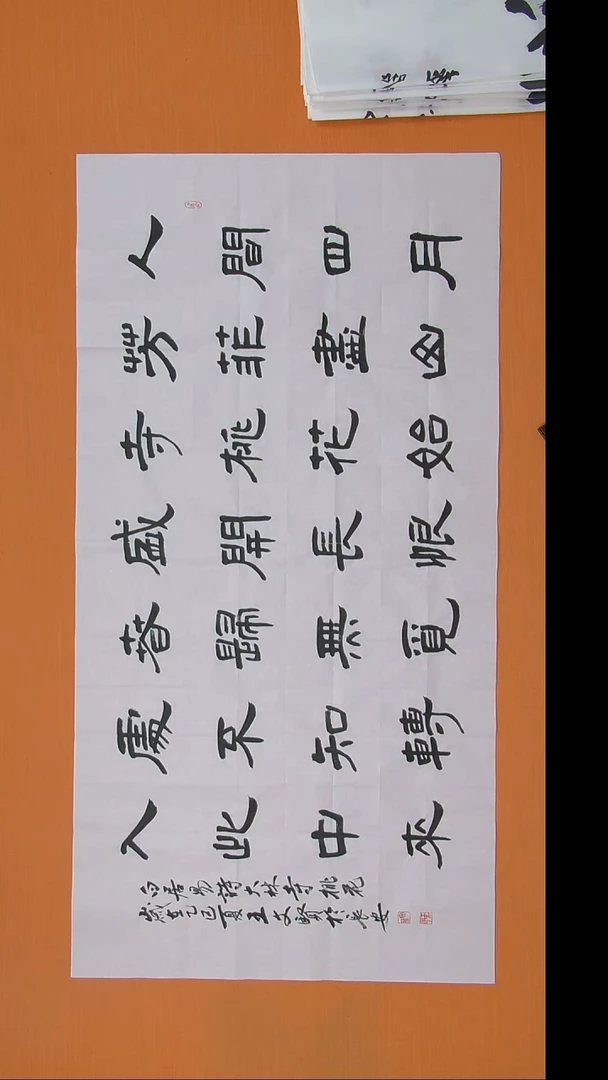 人間四月
芳菲盡山
寺桃花始
盛開長恨
春歸無覓
處不知轉
入此中來
白居易詩大林寺桃花
歲在乙巳夏王文賢於長安